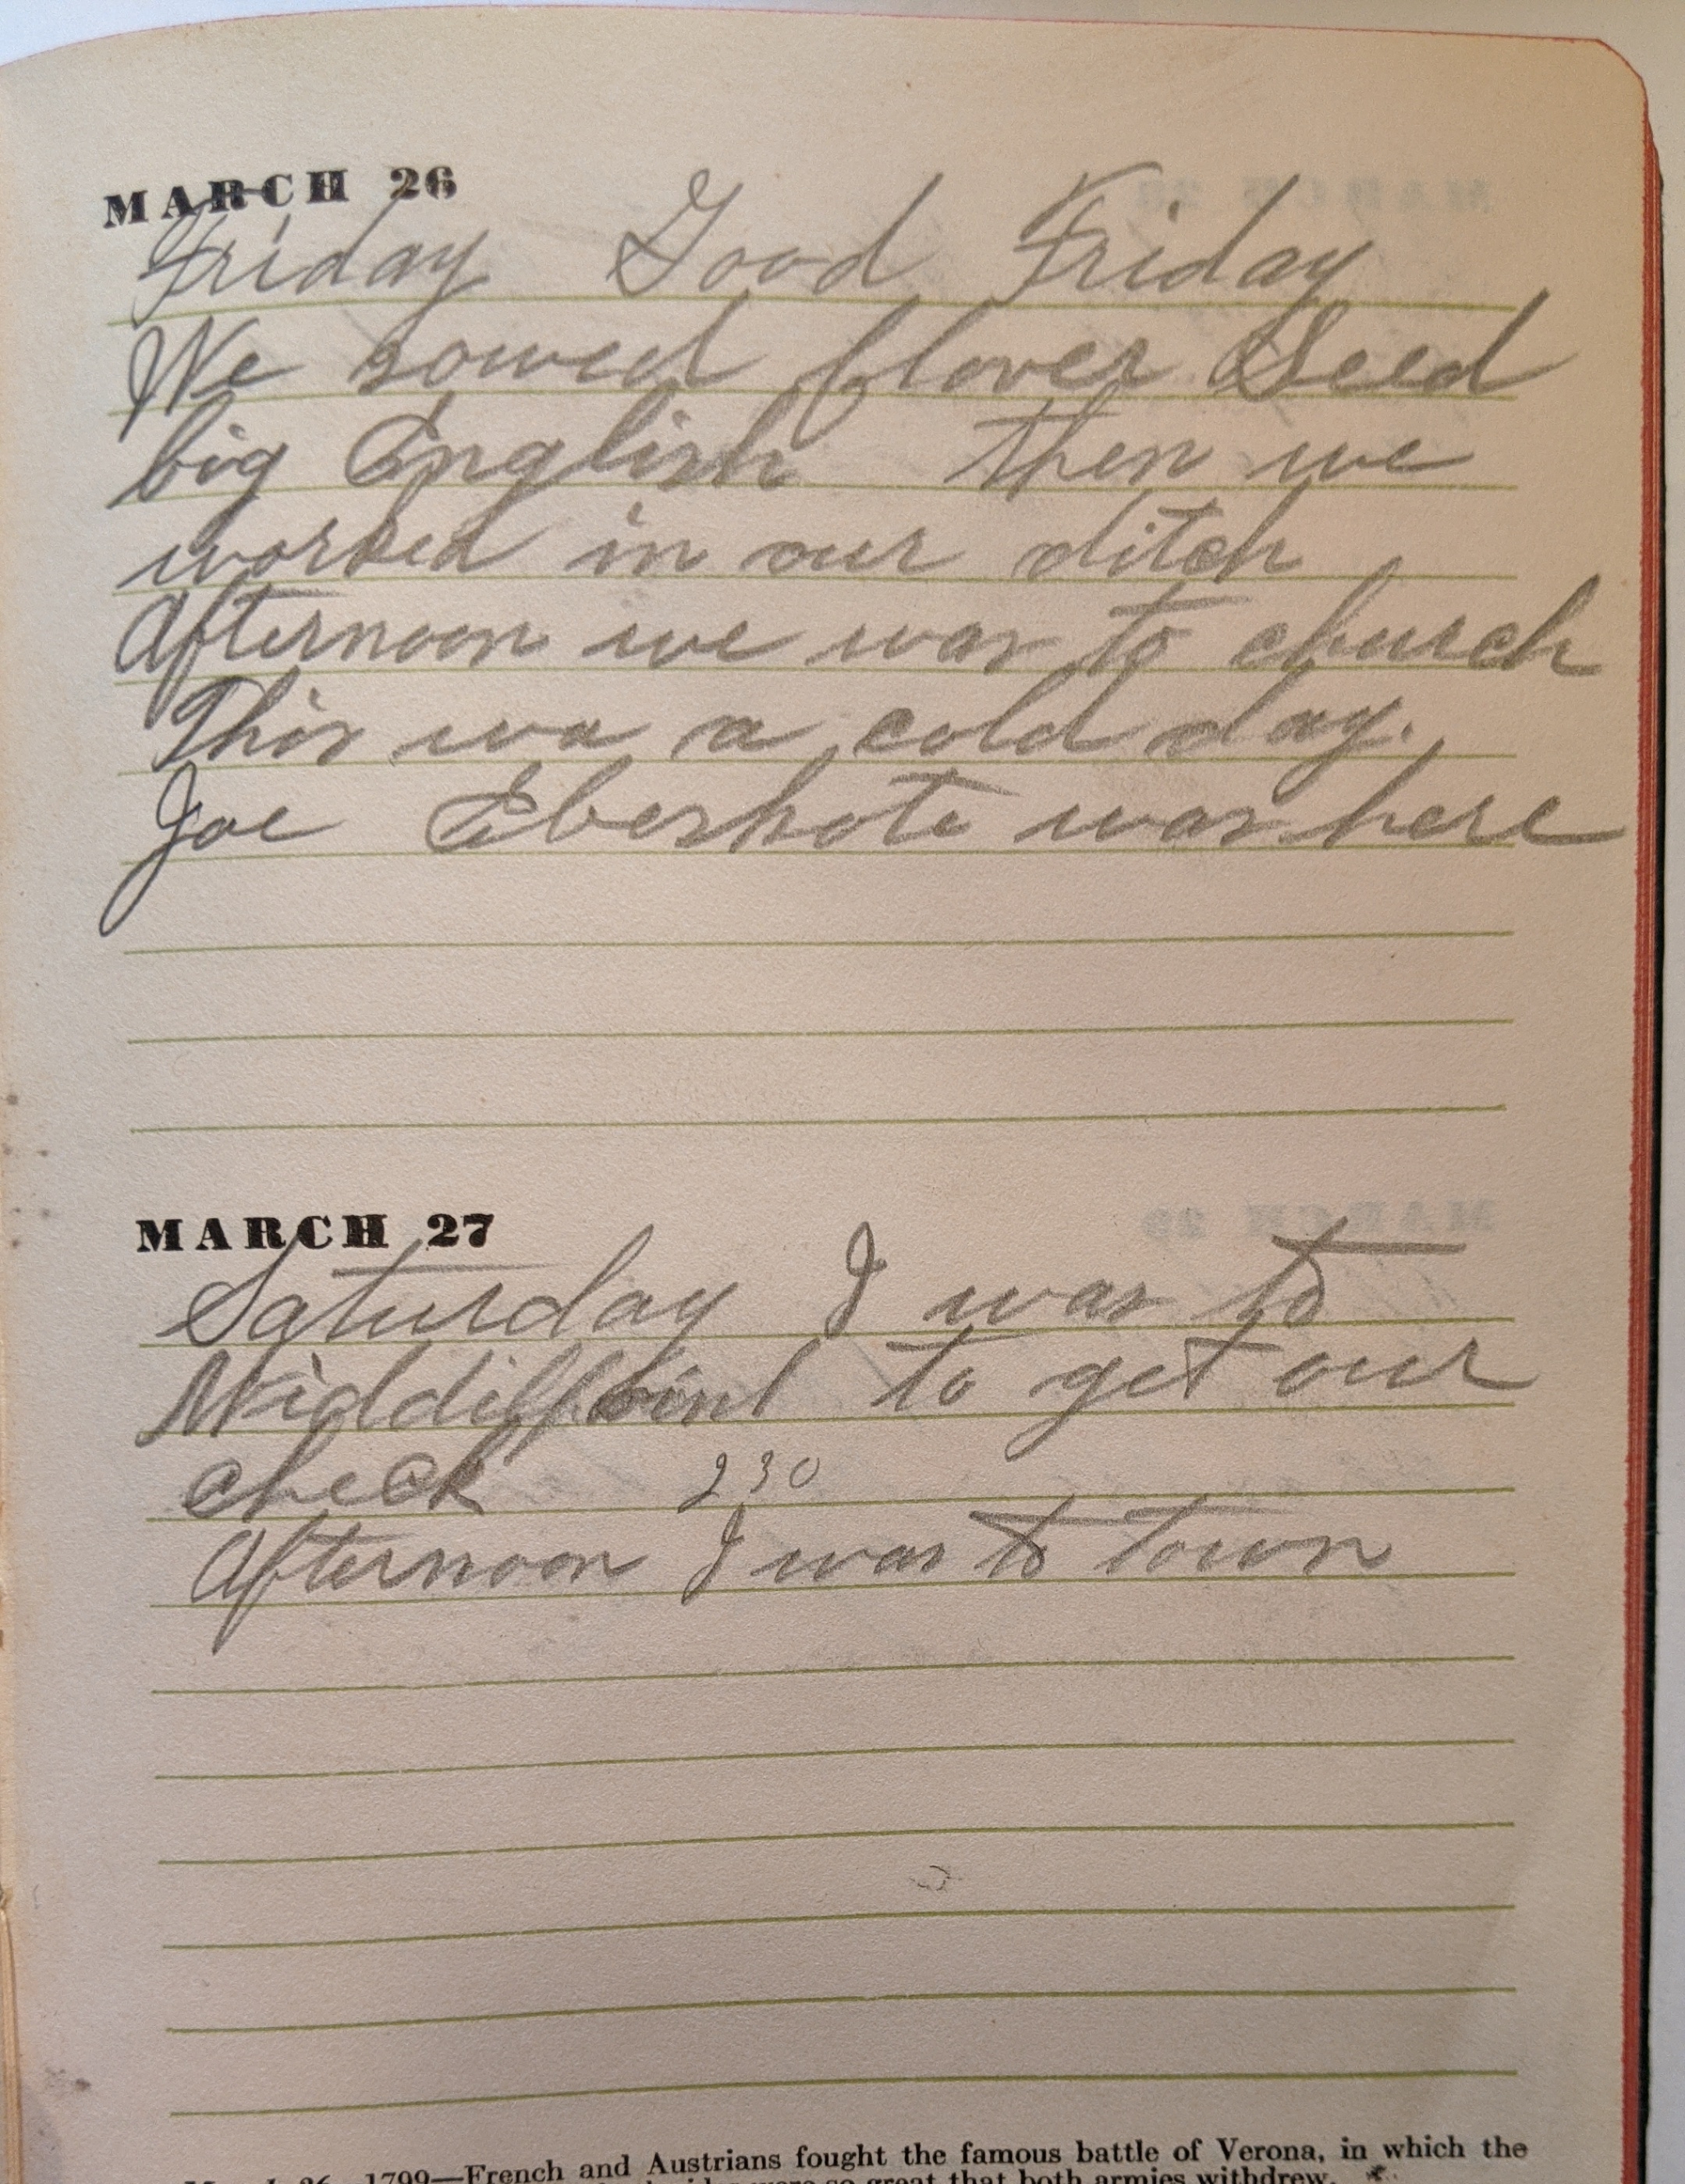 MARCH 26
Friday Good Friday
We sowed Clover Seed
big English then we
worked in our ditch
Afternoon we was to church
This wa a cold day.
Joe Eberhote was here
MARCH 27
Saturday I was to
Middilpoint to get our
check 230
Afternoon I was to town
1799—French and Austrians fought the famous battle of Verona, in which the
so great that both armies withdrew.